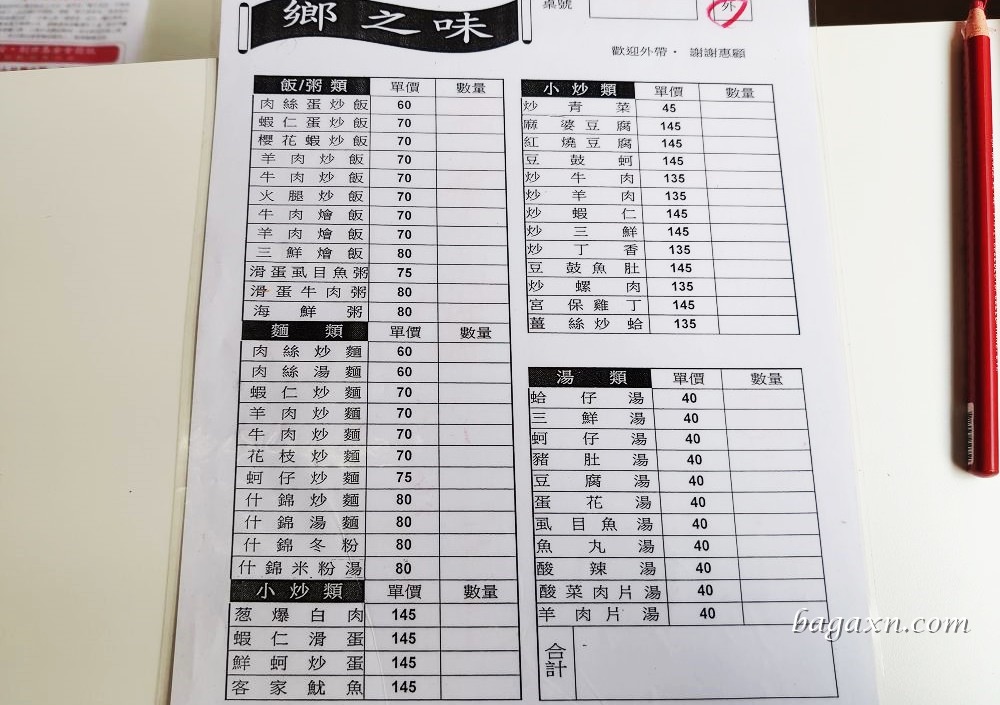 鄉之味
桌號
外
歡迎外帶・ 謝謝惠顧
飯/粥類 單價 數量
肉絲蛋炒飯 60
蝦仁蛋炒飯 70
櫻花蝦炒飯 70
羊肉炒飯 70
牛肉炒飯 70
火腿炒飯 70
牛肉燴飯 70
羊肉燴飯 70
三鮮燴飯 80
滑蛋虱目魚粥 75
滑蛋牛肉粥 80
海鮮粥 80
麵類 單價 數量
肉絲炒麵 60
肉絲湯麵 60
蝦仁炒麵 70
羊肉炒麵 70
牛肉炒麵 70
花枝炒麵 70
蚵仔炒麵 75
什錦炒麵 80
什錦湯麵 80
什錦冬粉 80
什錦米粉湯 80
小炒類 單價 數量
葱爆白肉 145
蝦仁滑蛋 145
鮮蚵炒蛋 145
客家魷魚 145
小炒類 單價 數量
炒青菜 45
麻婆豆腐 145
紅燒豆腐 145
豆鼓蚵 145
炒牛肉 135
炒羊肉 135
炒蝦仁 145
炒三鮮 145
炒丁香 135
豆鼓魚肚 145
炒螺肉 135
宮保雞丁 145
薑絲炒蛤 135
湯類 單價 數量
蛤仔湯 40
三鮮湯 40
蚵仔湯 40
豬肚湯 40
豆腐湯 40
蛋花湯 40
虱目魚湯 40
魚丸湯 40
酸辣湯 40
酸菜肉片湯 40
羊肉片湯 40
合計
bagaxn.com